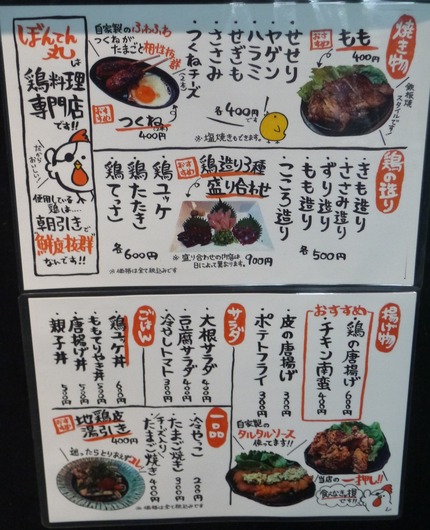 焼き物
おすすめ
もも
400円
鉄板焼
スタイルです!
せせり
ヤゲン
ハラミ
ささみ
せぎも
つくねチーズ
各400円
※塩焼きもできます。
自家製のふわふわ
つくねがたまごと相性抜群
おすすめ
つくね
400円
ぼんてん丸は
鶏料理
専門店
です!!
だから
おいしい!
使用している
鶏は…
朝引きで
鮮度抜群
なんです!!
鶏の造り
・きも造り
・ささみ造り
・ずり造り
・もも造り
・こころ造り
各500円
おすすめ
鶏造り3種
盛り合わせ
900円
※盛り合わせの内容は
日によって異なります。
鶏ユッケ
鶏たたき
鶏てっさ
各600円
※価格は全て税込みです
揚げ物
おすすめ
鶏の唐揚げ 600円
・チキン南蛮 400円
・皮の唐揚げ 300円
・ポテトフライ 300円
自家製の
タルタルソース
使ってます!!
当店の
一押し!!
サラダ
・大根サラダ 400円
・豆腐サラダ 400円
・冷やしトマト 300円
一品
・冷やっこ 200円
・たまご焼き 300円
・チーズ入り
たまご焼き 400円
ごはん
・鶏ユッケ丼 600円
・ももてりやき丼 500円
・唐揚げ丼 500円
・親子丼 500円
おすすめ
地鶏皮
湯引き
400円
迷ったらとりあえずコレ
※価格は全て税込みです